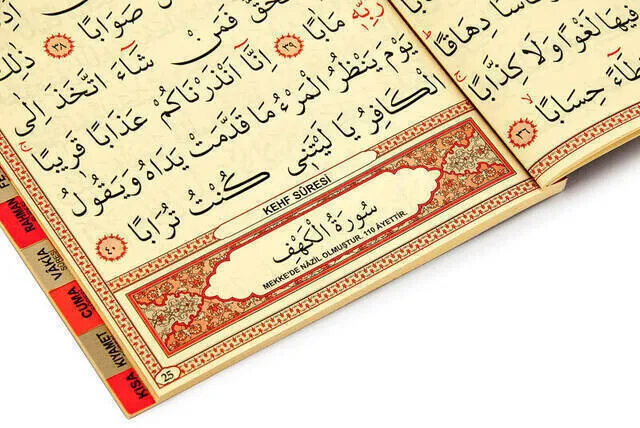 دِهَاقًا
فِيهَا لَغْوًا وَلَا كِذَّابًا
حِسَابًا ٣٦
صَوَابًا ٣٨ ذٰلِكَ
فَمَنْ شَاءَ اتَّخَذَ إِلَى
رَبِّهِ مَاٰبًا ٣٩ إِنَّا أَنْذَرْنَاكُمْ عَذَابًا قَرِيبًا
يَوْمَ يَنْظُرُ الْمَرْءُ مَا قَدَّمَتْ يَدَاهُ وَيَقُولُ
الْكَافِرُ يَا لَيْتَنِى كُنْتُ تُرَابًا ٤٠
KEHF SÛRESİ
سُورَةُ الْكَهْفِ
MEKKE'DE NÂZİL OLMUŞTUR. 110 ÂYETTİR.
25
RAHMAN
VAKIA
SÛRESİ
CUMA
KIYAMET
KISA